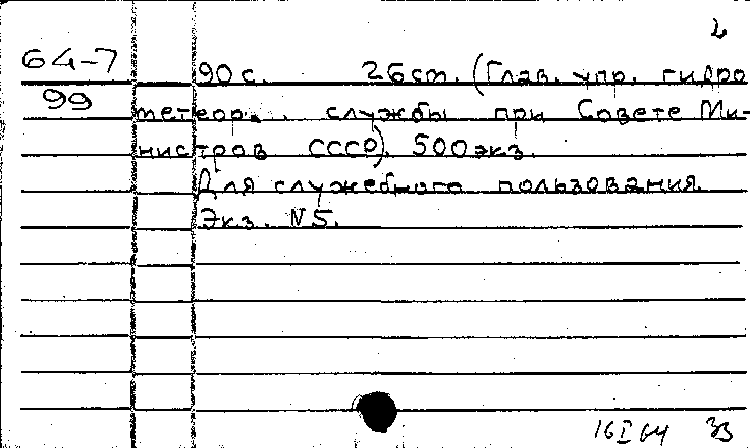 2
64-7 90 с. 26 см. (Глав. упр. гидро
99 метеор. службы при Совете Ми-
нистров СССР). 500 экз.
Для служебного пользования.
Экз. N5.
16 I 64 33